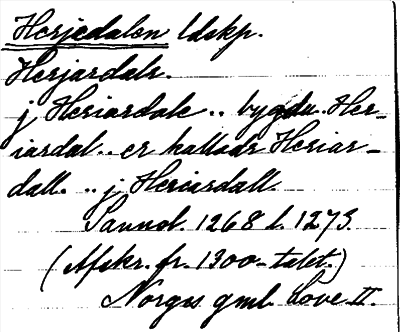 Herjedalen ldskp.
Herjardalr.
j Heriardale .. bygdu Her-
iardal .. er kallade Heriar-
dall. .. j Heriardall
Sannol. 1268 l. 1273.
(Afskr. fr. 1300-talet.)
Norges gml. love II.